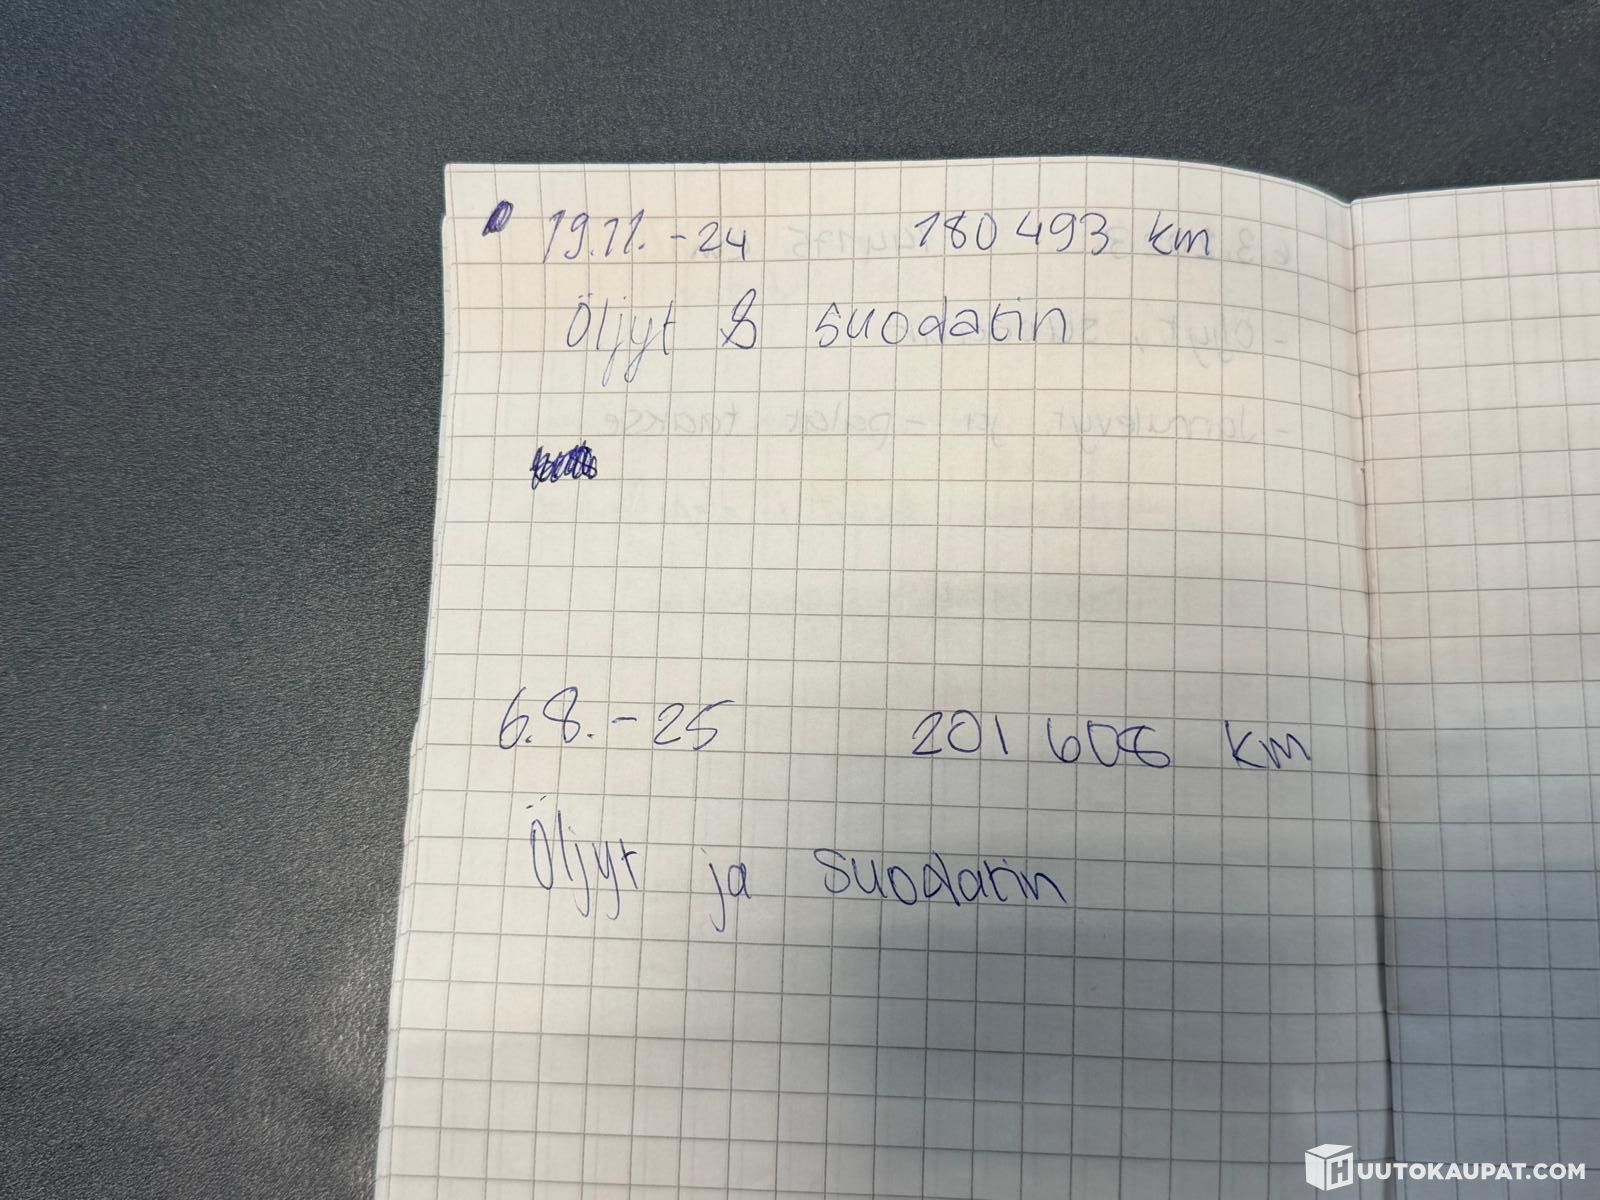 19.11.-24 180 493 km
Öljyt & suodatin
6.8.-25 201 608 km
Öljyt ja suodatin
HUUTOKAUPAT.COM